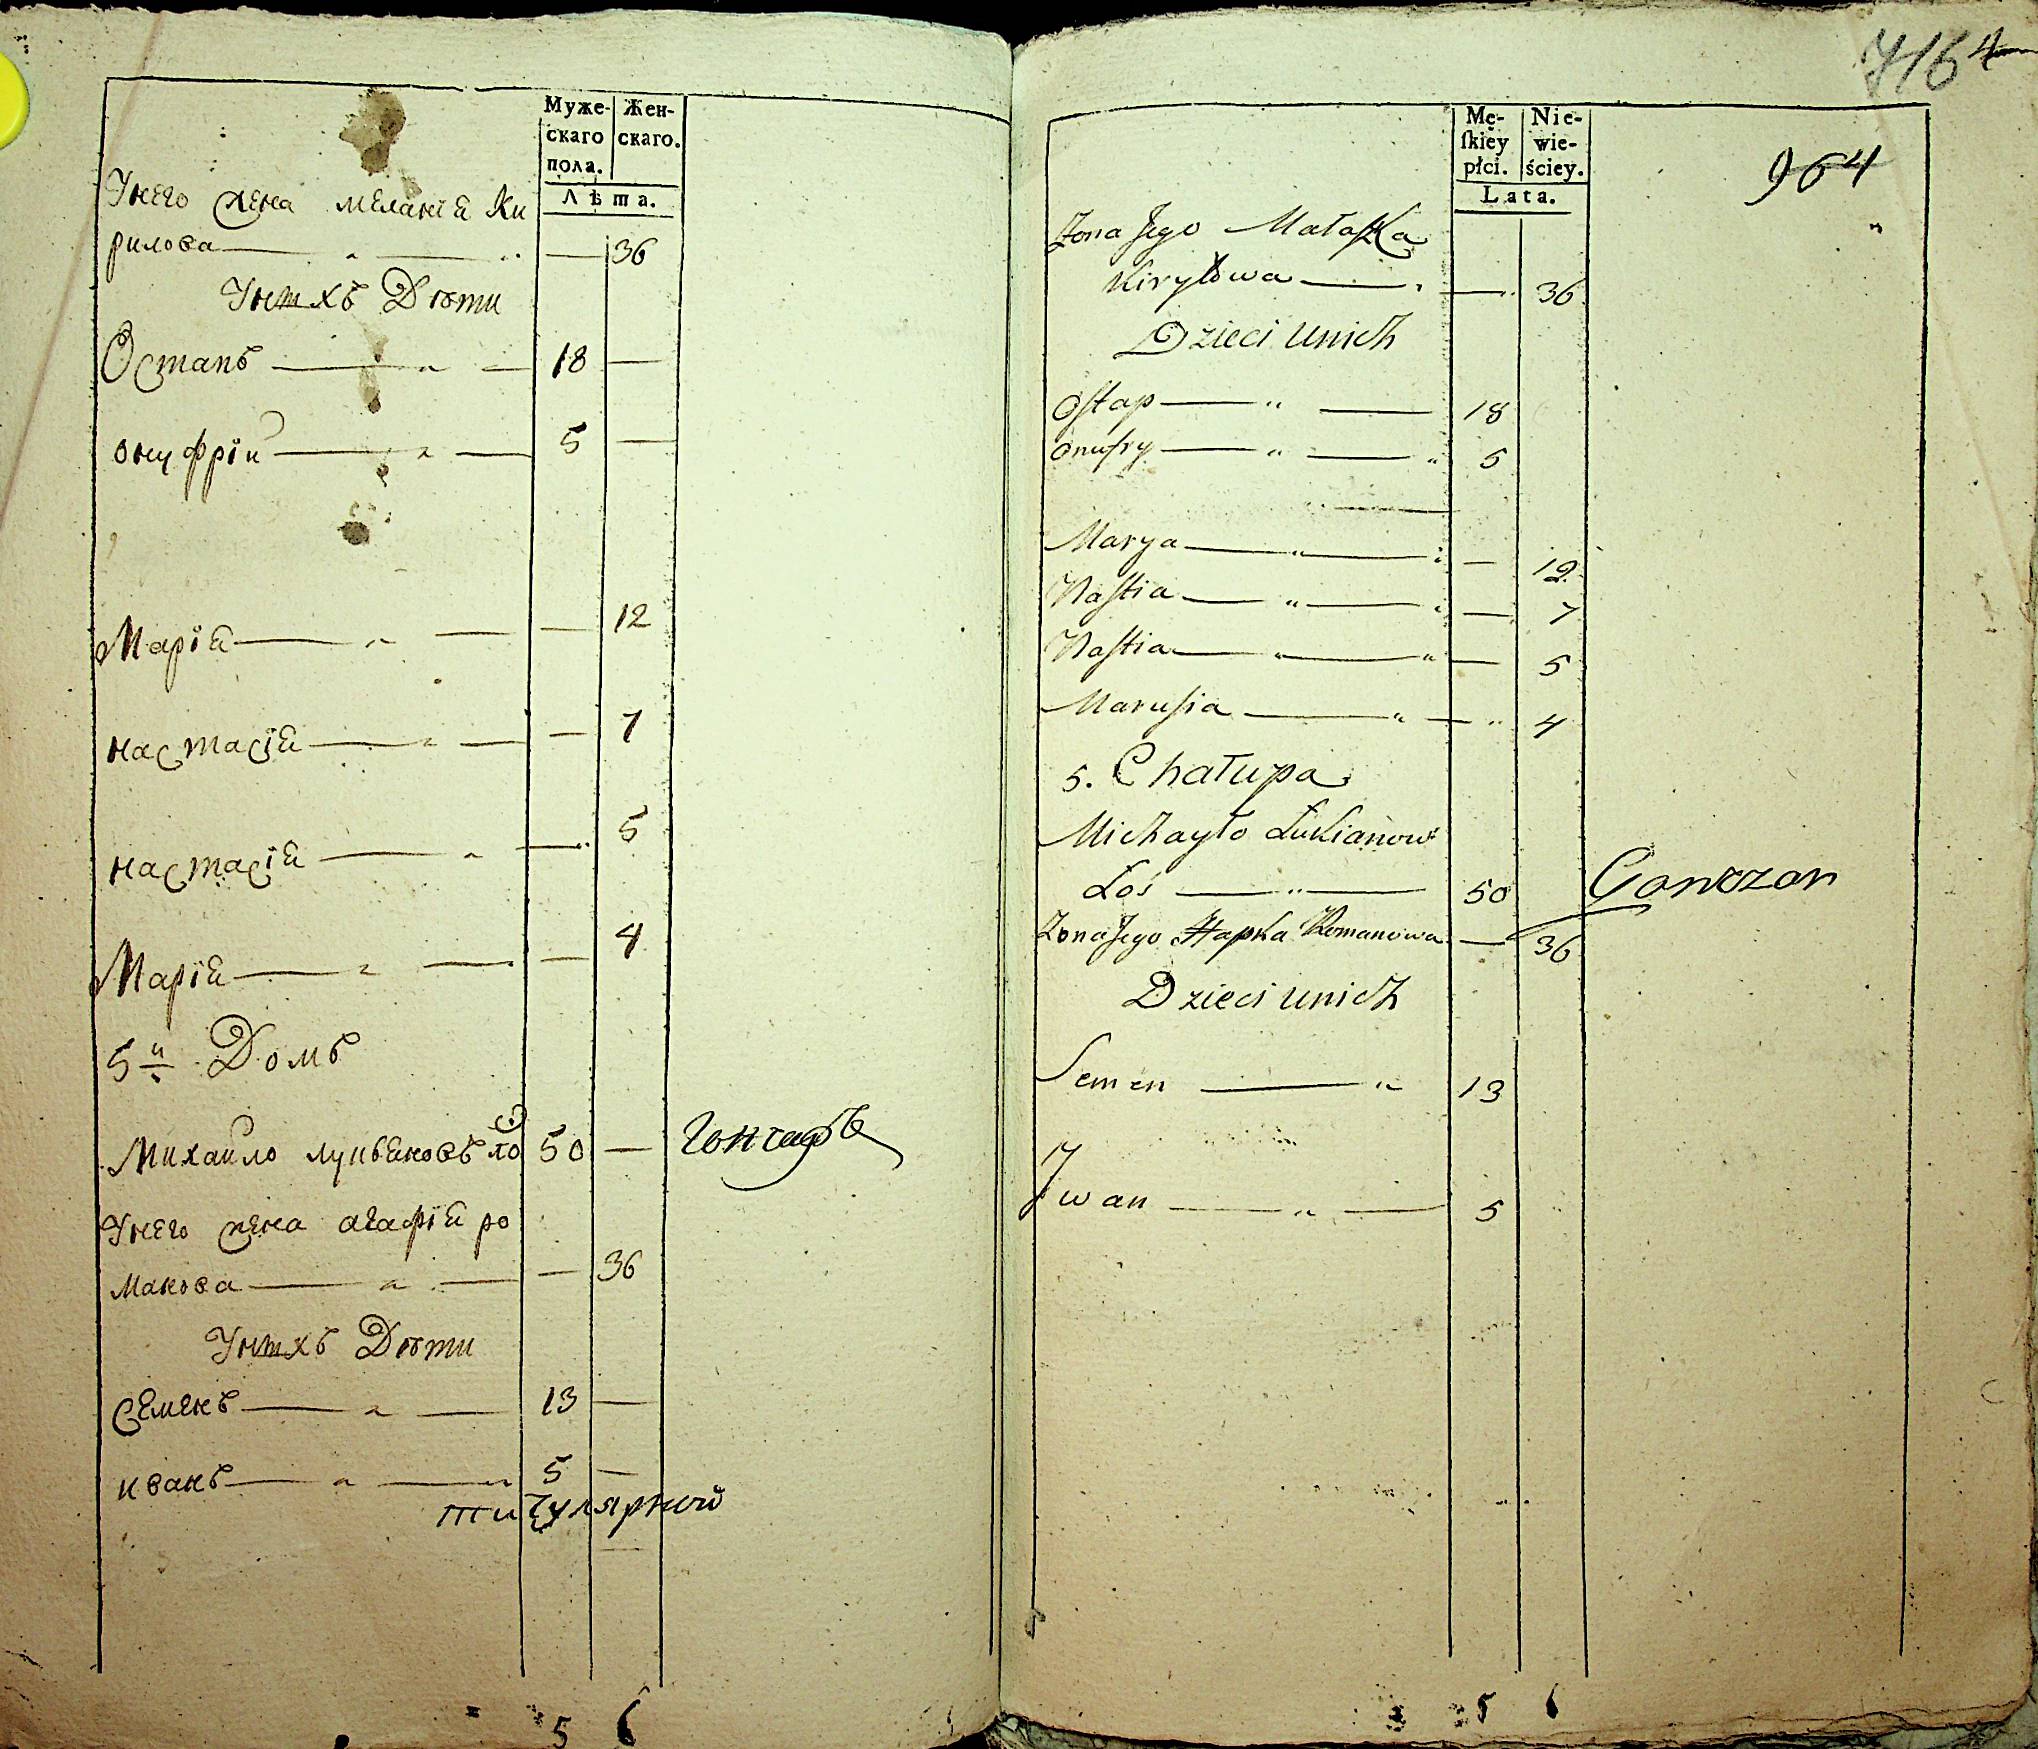 Муже-
скаго
пола.
Жен-
скаго.
Лѣта.
Унего жена меланія Ки
рилова — „ — 36
Унихъ Дѣти
Остапъ — „ — 18 —
онуфрій — „ — 5 —
Марія — „ — 12
настасія — „ — 7
настасія — „ — 5
Марія — „ — 4
5й Домъ
Михайло лукьяновъ лос 50 — Гончаръ
Унего жена агафія ро
манова — „ — 36
Унихъ Дѣти
семенъ — „ — 13 —
иванъ — „ — 5 —
титулярной
5 6
7164
964
Mę-
ſkiey
płci.
Nie-
wie-
ściey.
Lata.
Żona Jego Małaſzka
Kiryłowa — 36
Dzieci unich
Oſtap — „ — 18
Onufry — „ — 5
Marya — „ — 12
Naſtia — „ — 7
Naſtia — „ — 5
Maruſia — „ — 4
5. Chałupa
Michayło Łukianow
Łoś — „ — 50 Gonczar
Żona Jego Hapka Romanowa — 36
Dzieci unich
Semen — „ 13
Jwan — „ — 5
5 6